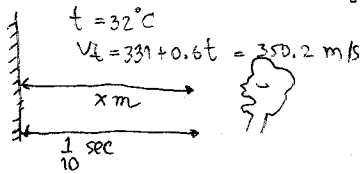 t = 32°C
Vt = 331 + 0.6t = 350.2 m/s
x m
1/10 sec